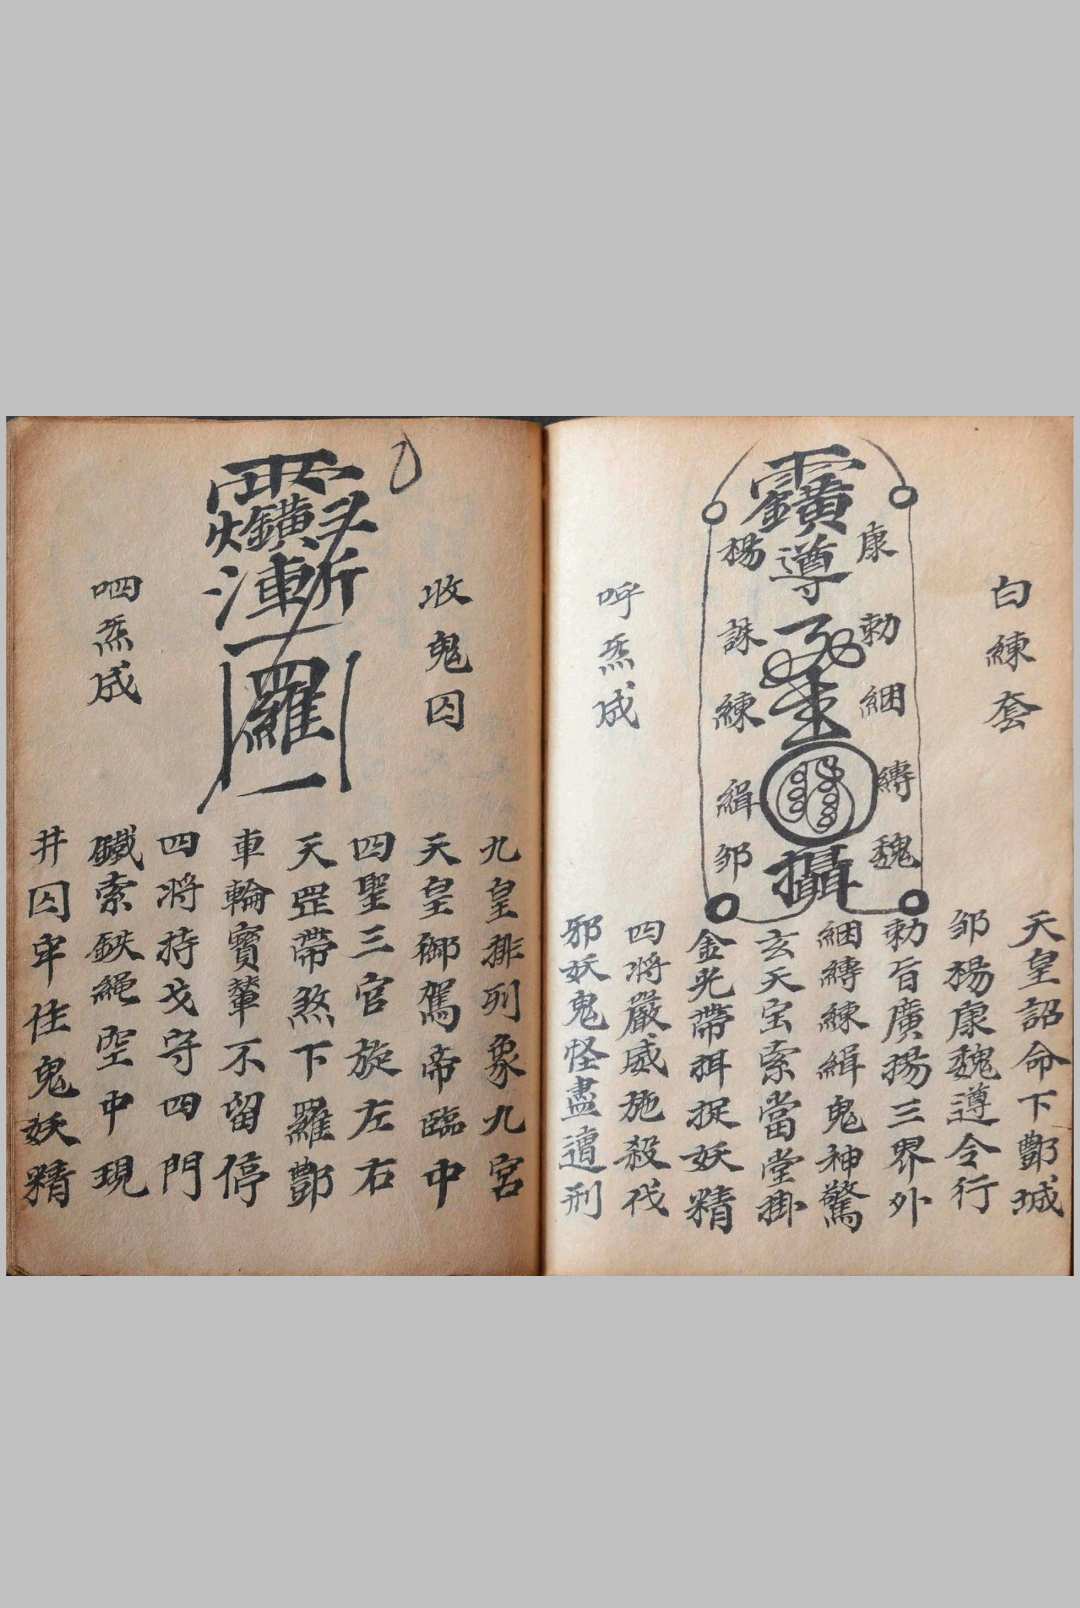 白練套
康
勅
綑
縛
魏
導
攝
楊
誅
練
緝
邹
呼炁成
天皇詔命下酆城
邹楊康魏遵令行
勅旨廣揚三界外
綑縛練緝鬼神驚
玄天宝索當堂掛
金光帶挕捉妖精
四將嚴威施殺伐
邪妖鬼怪盡遭刑
收鬼囚
羅
呬炁成
九皇排列象九宮
天皇御駕帝臨中
四聖三官旋左右
天罡帶煞下羅酆
車輪寶輦不留停
四將持戈守四門
鐵索鉄繩空中現
井囚牢住鬼妖精